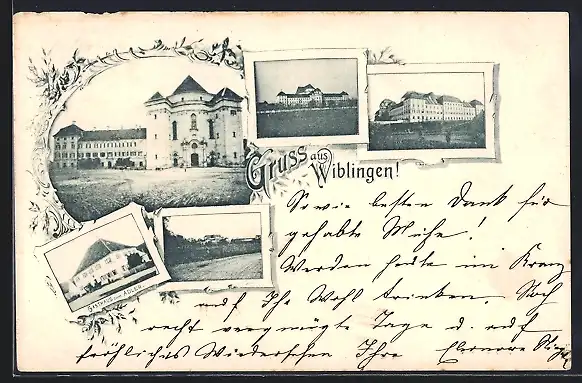 Gruss aus Wiblingen!
GASTHAUS zum ADLER.
Sowie besten Dank für
gehabte Mühe!
Werden heute im Kranz
auf Ihr Wohl trinken. Noch
recht vergnügte Tage u. auf
fröhliches Wiedersehen Ihre